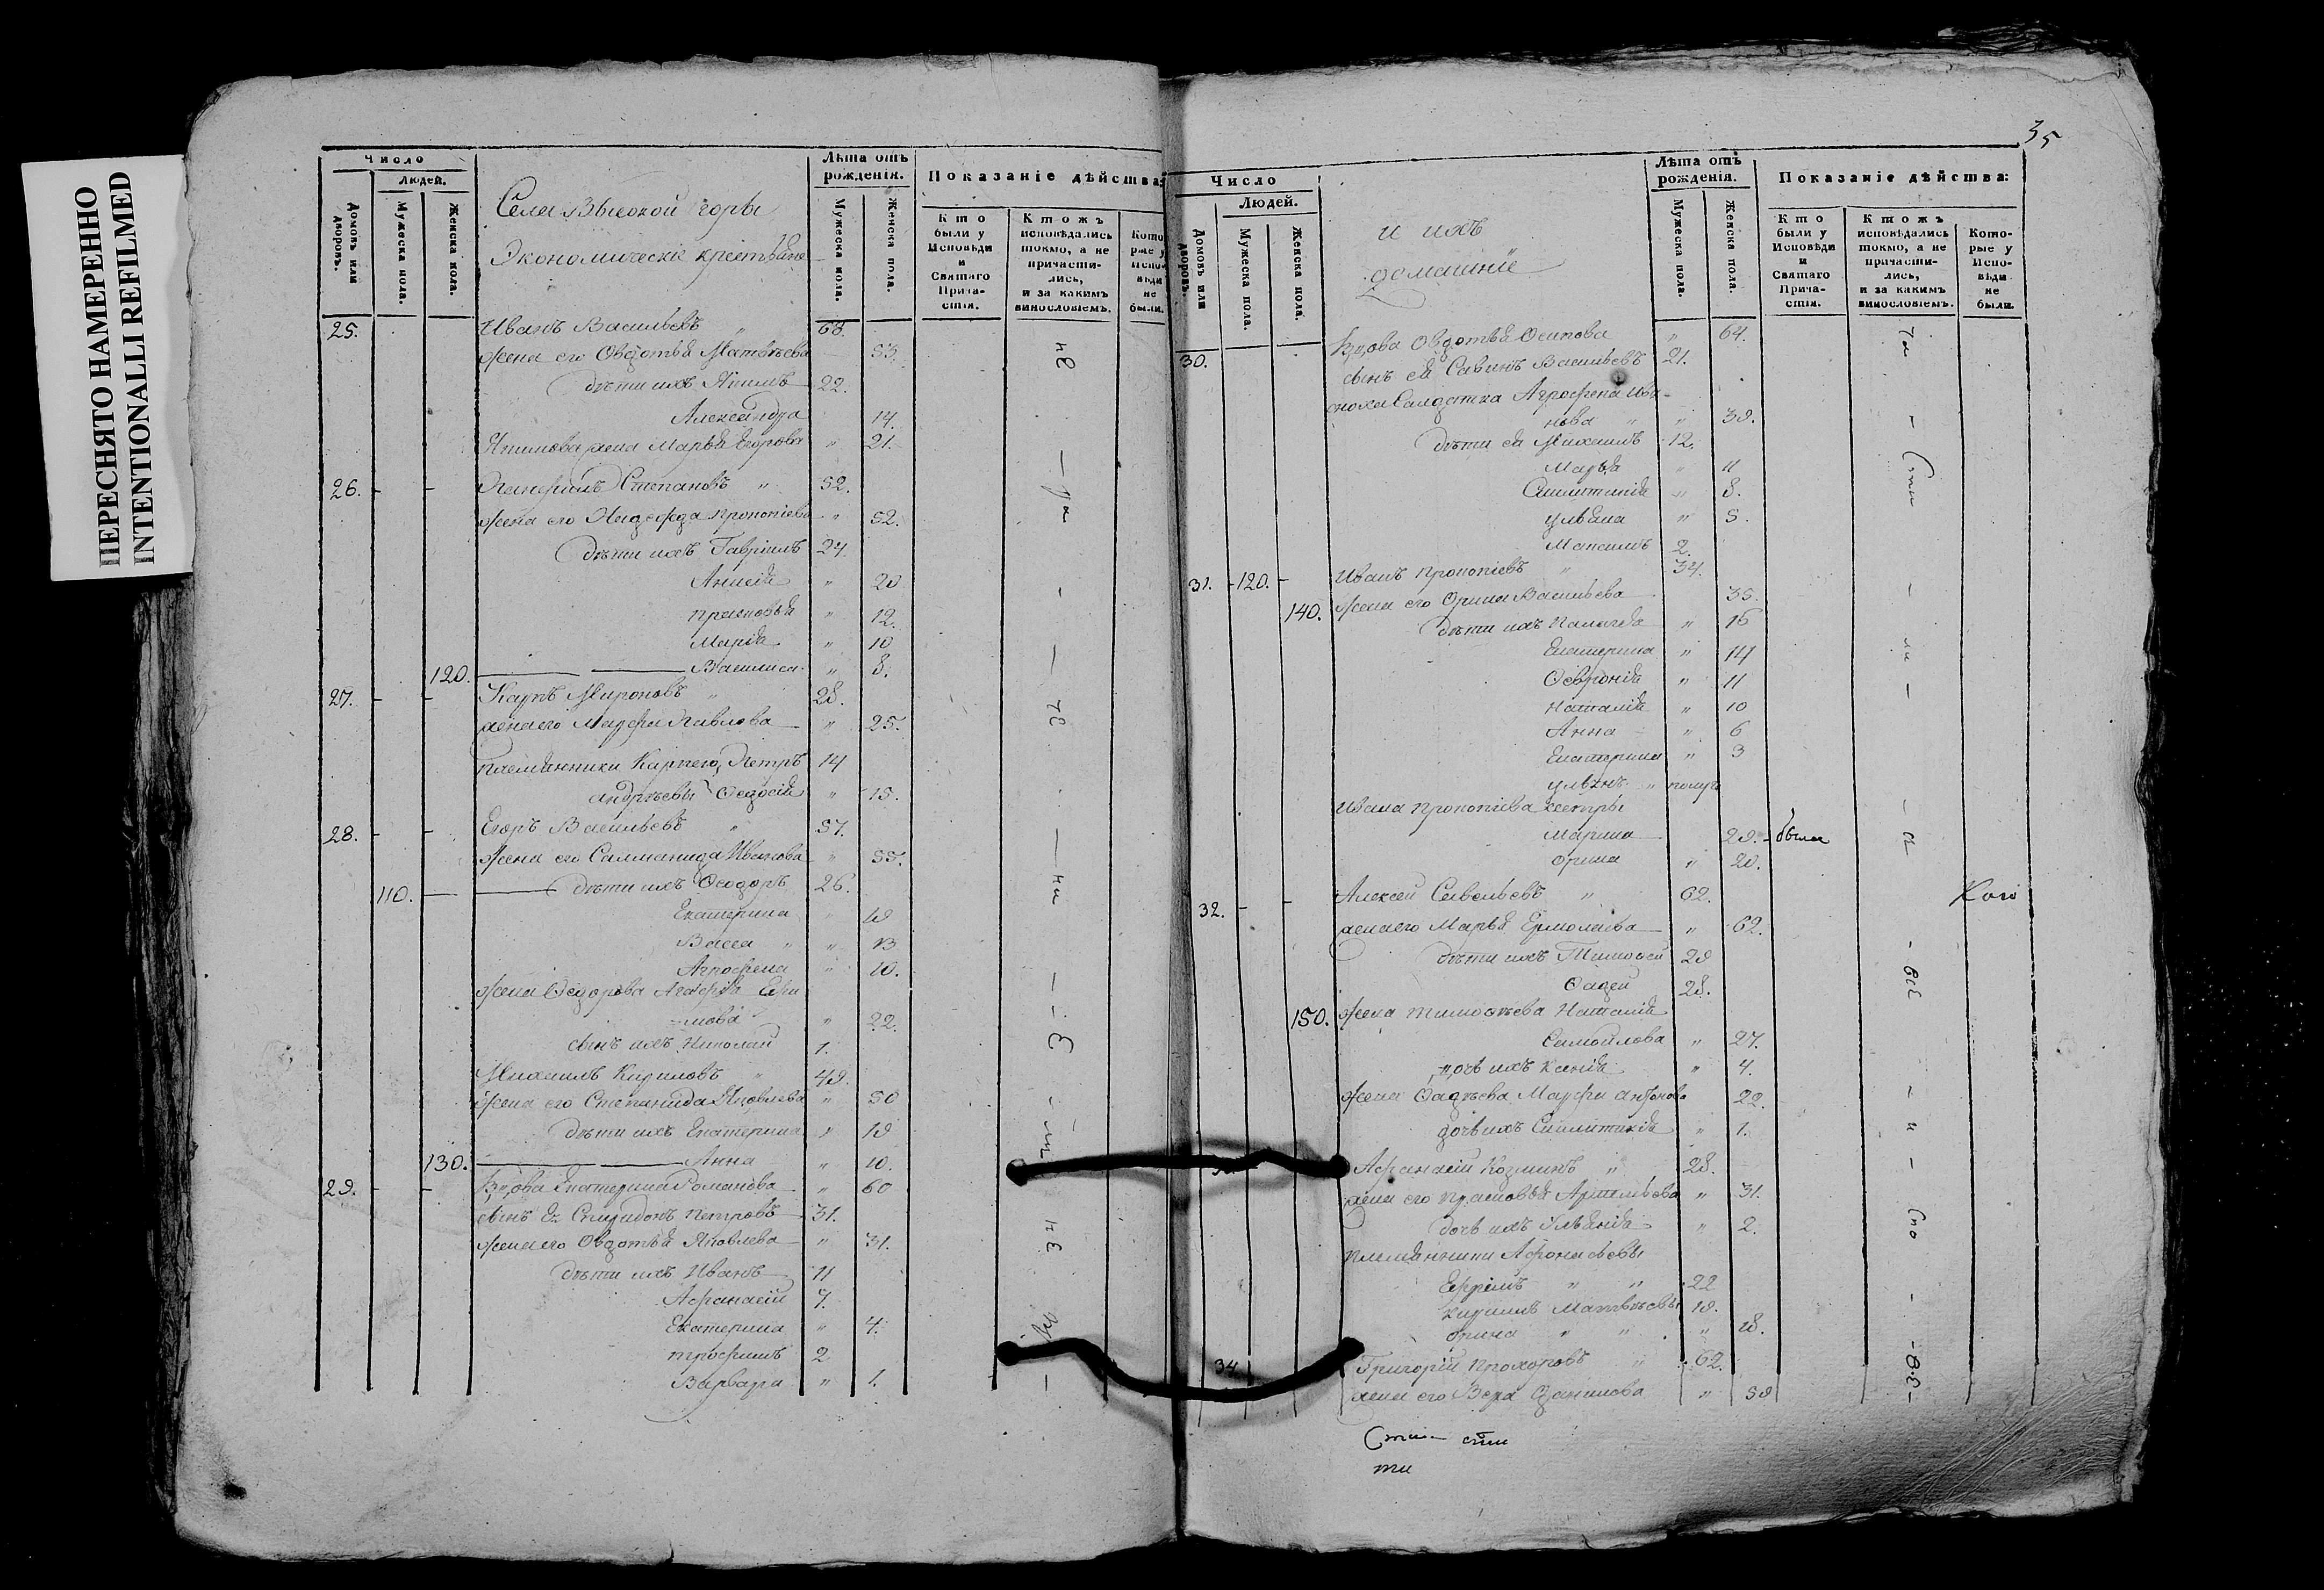 ПЕРЕСНЯТО НАМЕРЕННО
INTENTIONALLI REFILMED
Число
Людей.
Домовъ или дворовъ.
Мужеска пола.
Женска пола.
Села Высокой горы
Экономическіе крестьяне
Лѣта отъ рожденія.
Мужеска пола.
Женска пола.
Показаніе дѣйства:
Кто были у Исповѣди и Святаго Прича-стія.
Ктожъ исповѣдались токмо, а не причасти-лись, и за какимъ винословіемъ.
Кото-рые у Испо-вѣди не были.
25. Иванъ Васильевъ " 68.
жена его Овдотья Матвѣева 53.
дѣти ихъ Якимъ 22.
Александра 14.
Якимова жена Марья Егорова " 21.
26. - - Степановъ " 52.
жена его Прокопіева " 52.
дѣти ихъ Гавріилъ 24
Анисія " 20
Прасковья " 12.
Марія " 10
120. Василиса " 8.
27. - - Карпъ Мироновъ " 28.
жена его Марфа Павлова " 25.
Племянники Карпего, Петръ 14
Андрѣевы Ѳедосія " 15.
28. - - Егоръ Васильевъ " 57.
жена его Саламанида Иванова " 55.
110. дѣти ихъ Ѳеодоръ 26.
Екатерина 
Васса " "
Агрофена " 10.
жена Ѳедорова Агафья Ефи
=мова " 22.
сынъ ихъ Николай 1.
Михаилъ Кириловъ " 49.
жена его Степанида Яковлева " 50
дѣти ихъ Екатерина " 19
130. Анна " 10.
29. - - Вдова Екатерина Романова " 60
сынъ Ея Спиридонъ Петровъ 31.
жена его Овдотья Яковлева " 31.
дѣти ихъ Иванъ 11
Афанасій 7.
Екатерина " 4.
Трофимъ 2
Варвара " 1.
35
Число
Людей.
Домовъ или дворовъ.
Мужеска пола.
Женска пола.
и ихъ
домашніе
Лѣта отъ рожденія.
Мужеска пола.
Женска пола.
Показаніе дѣйства:
Кто были у Исповѣди и Святаго Прича-стія.
Ктожъ исповѣдались токмо, а не причасти-лись, и за какимъ винословіемъ.
Кото-рые у Испо-вѣди не были.
Вдова Овдотья Осипова " 64.
30. сынъ ея Савинъ Васильевъ 21.
сноха Салдатка Агрофена Ива-
нова " " 39.
дѣти ея Михаилъ 12.
Марья " 11
Синлитикія " 8.
Ульяна " 5.
Максимъ 2.
31. - 120. - Иванъ Прокопіевъ " 34.
140. жена его Орина Васильева 35.
дѣти ихъ Палагея " 16
Екатерина " 14
Ѳевронія " 11
Наталія " 10
Анна " 6
Екатерина " 3
Ивана Прокопіева сестры
Марина 29. - была
Орина " 20.
32. - - Алексей Савельевъ " 62.
жена его Марья Ермолаева " 62.
дѣти ихъ Тимоѳей 29
Ѳадей 28.
150. жена Тимоѳеева Наталія
Самойлова " 27.
дочь ихъ Ксенія " 4.
жена Ѳадѣева Марфа Антонова
дочь ихъ Синлитикія " 1.
Афанасій Козминъ " 28.
жена его Прасковья Артемьева " 31.
дочь ихъ Ульянія " 2.
Племянники Афонасьевы
Ефримъ " " 22
Кирилъ Матвѣевы 19.
Орина " " " 18.
34. Григорій Прохоровъ " 62.
жена его Вера Данилова " 59